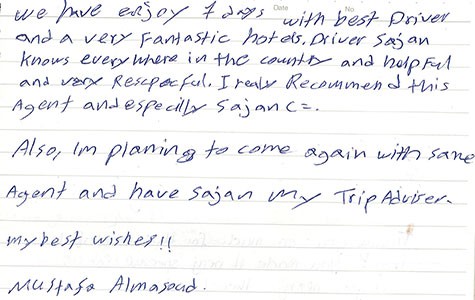 Date No
we have enjoy 7 days with best Driver
and a very Fantastic hotels. Driver Sajan
knows everywhere in the country and helpful
and very Rescpecful. I realy Recommend this
Agent and especilly Sajan C=.
Also, Im planing to come again with same
Agent and have Sajan my Trip Adviser.
my best wishes!!
Mustafa Almasoud.